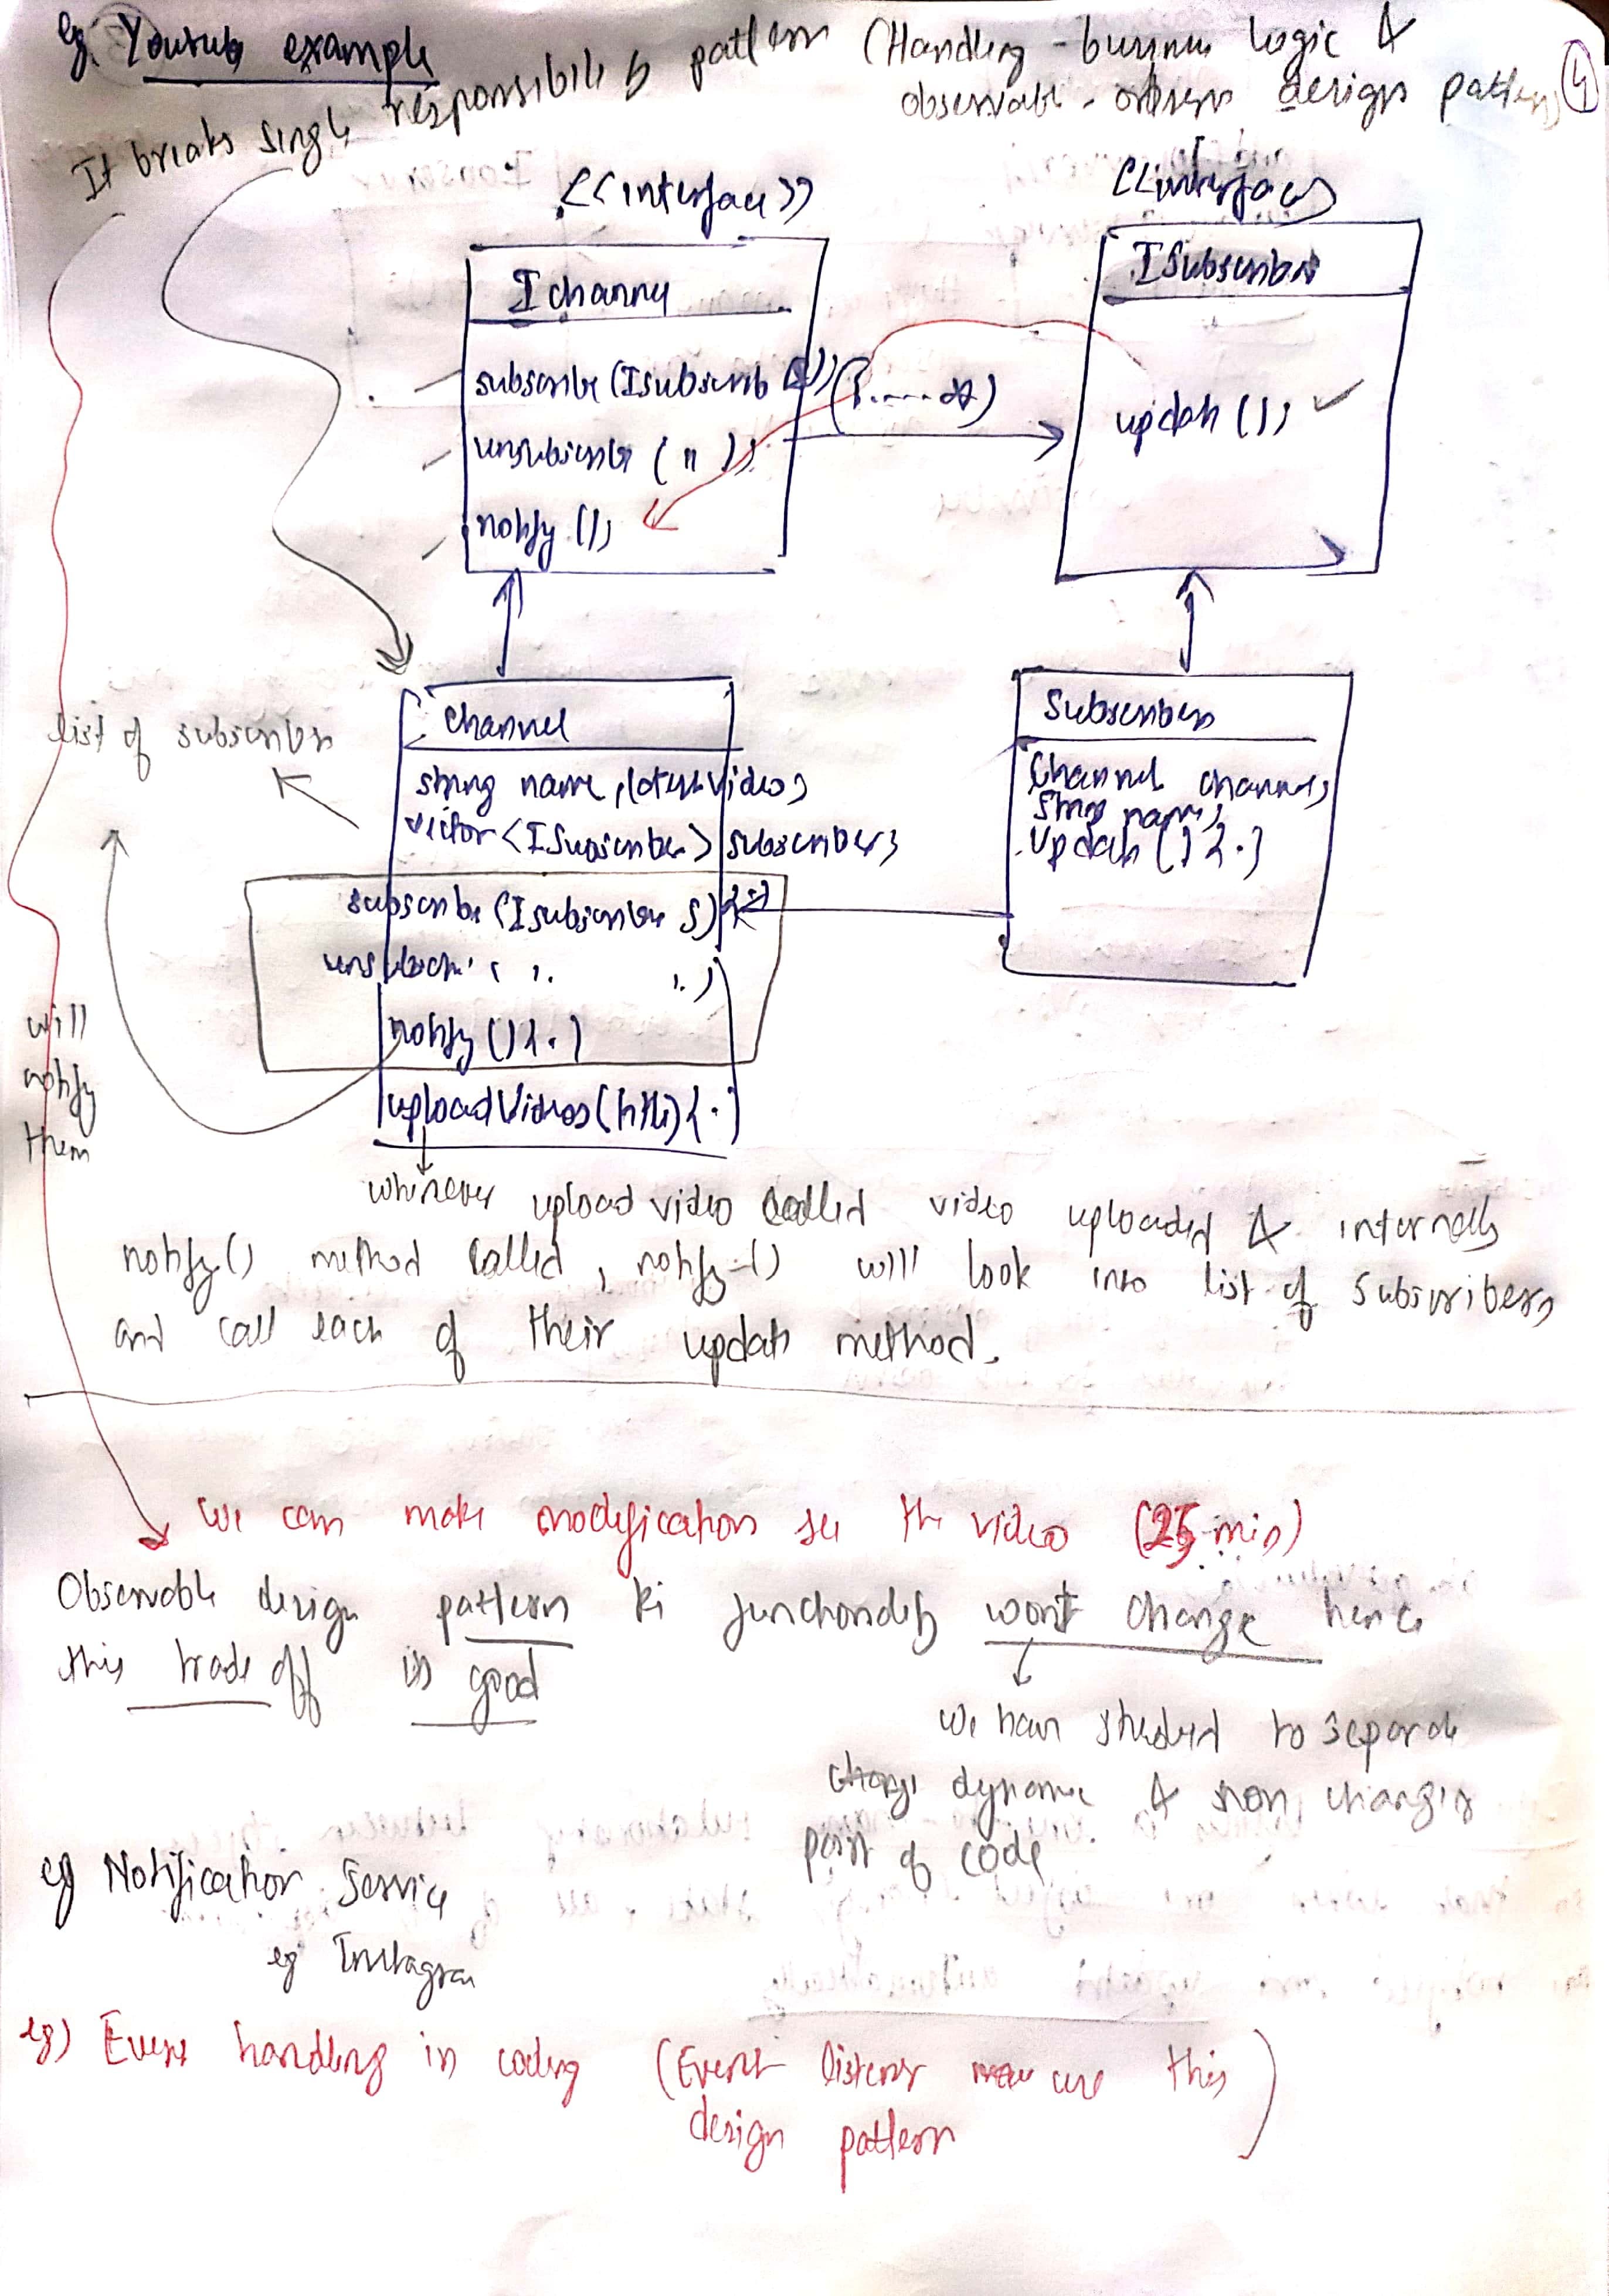 eg. Youtube example
It breaks single responsibility pattern (Handling - business logic &
observable - observer design pattern)
4
<<interface>>
IChannel
subscribe (ISubscriber s);
unsubscribe ( " );
notify ();
(1.....*)
<<interface>>
ISubscriber
update ();
list of subscriber
will
notify
them
Channel
string name, latestVideo;
vector <ISubscriber> subscriber;
subscribe (ISubscriber s) {.}
unsubscri ( " " )
notify () {.}
uploadVideos (title) {.}
Subscribers
Channel channel;
String name;
update () {.}
whenever upload video called video uploaded & internally
notify() method called, notify() will look into list of subscribers
and call each of their update method.
we can make modification see the video (25 min)
Observable design pattern ki functionality wont change hence
this trade off is good
we have studied to separate
dynamic & non changing
part of code
eg Notification Service
eg Instagram
eg) Event handling in coding (Event listener use this
design pattern)